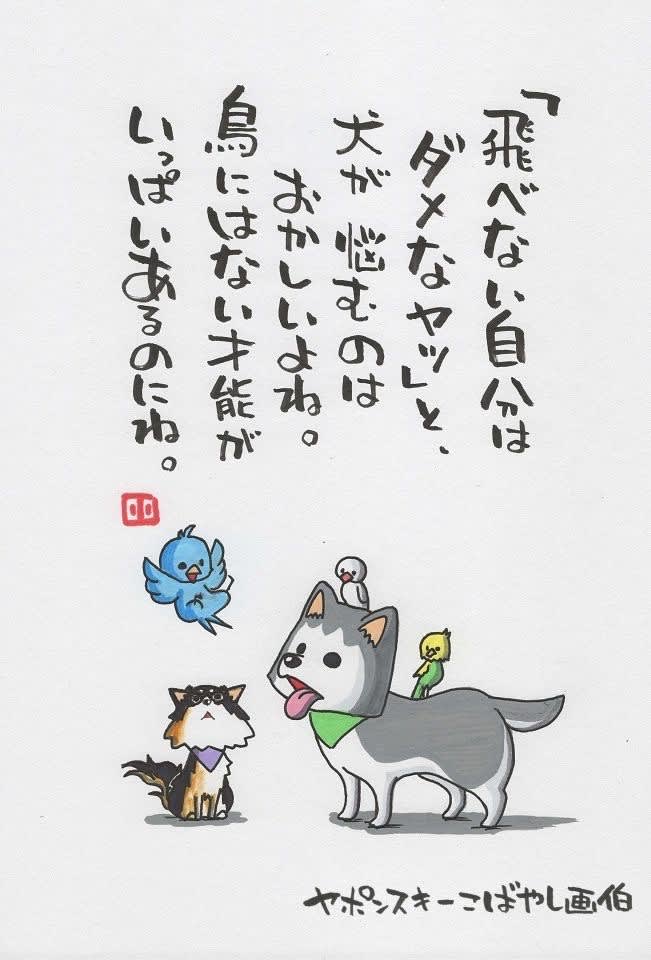 「飛べない自分は
ダメなヤツ」と、
犬が 悩むのは
おかしいよね。
鳥にはない才能が
いっぱいあるのにね。
ヤポンスキーこばやし画伯